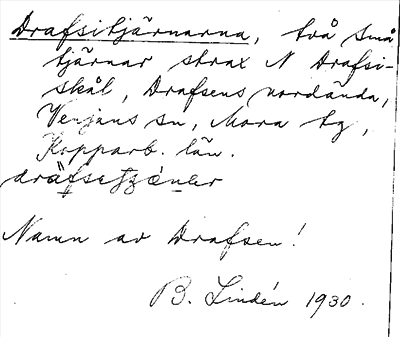 Drafsitjärnarna, två små
tjärnar strax N Drafsi-
skål, Drafsens nordända,
Venjans sn, Mora tg,
Kopparb. län.
Namn av Drafsen!
B. Lindén 1930.